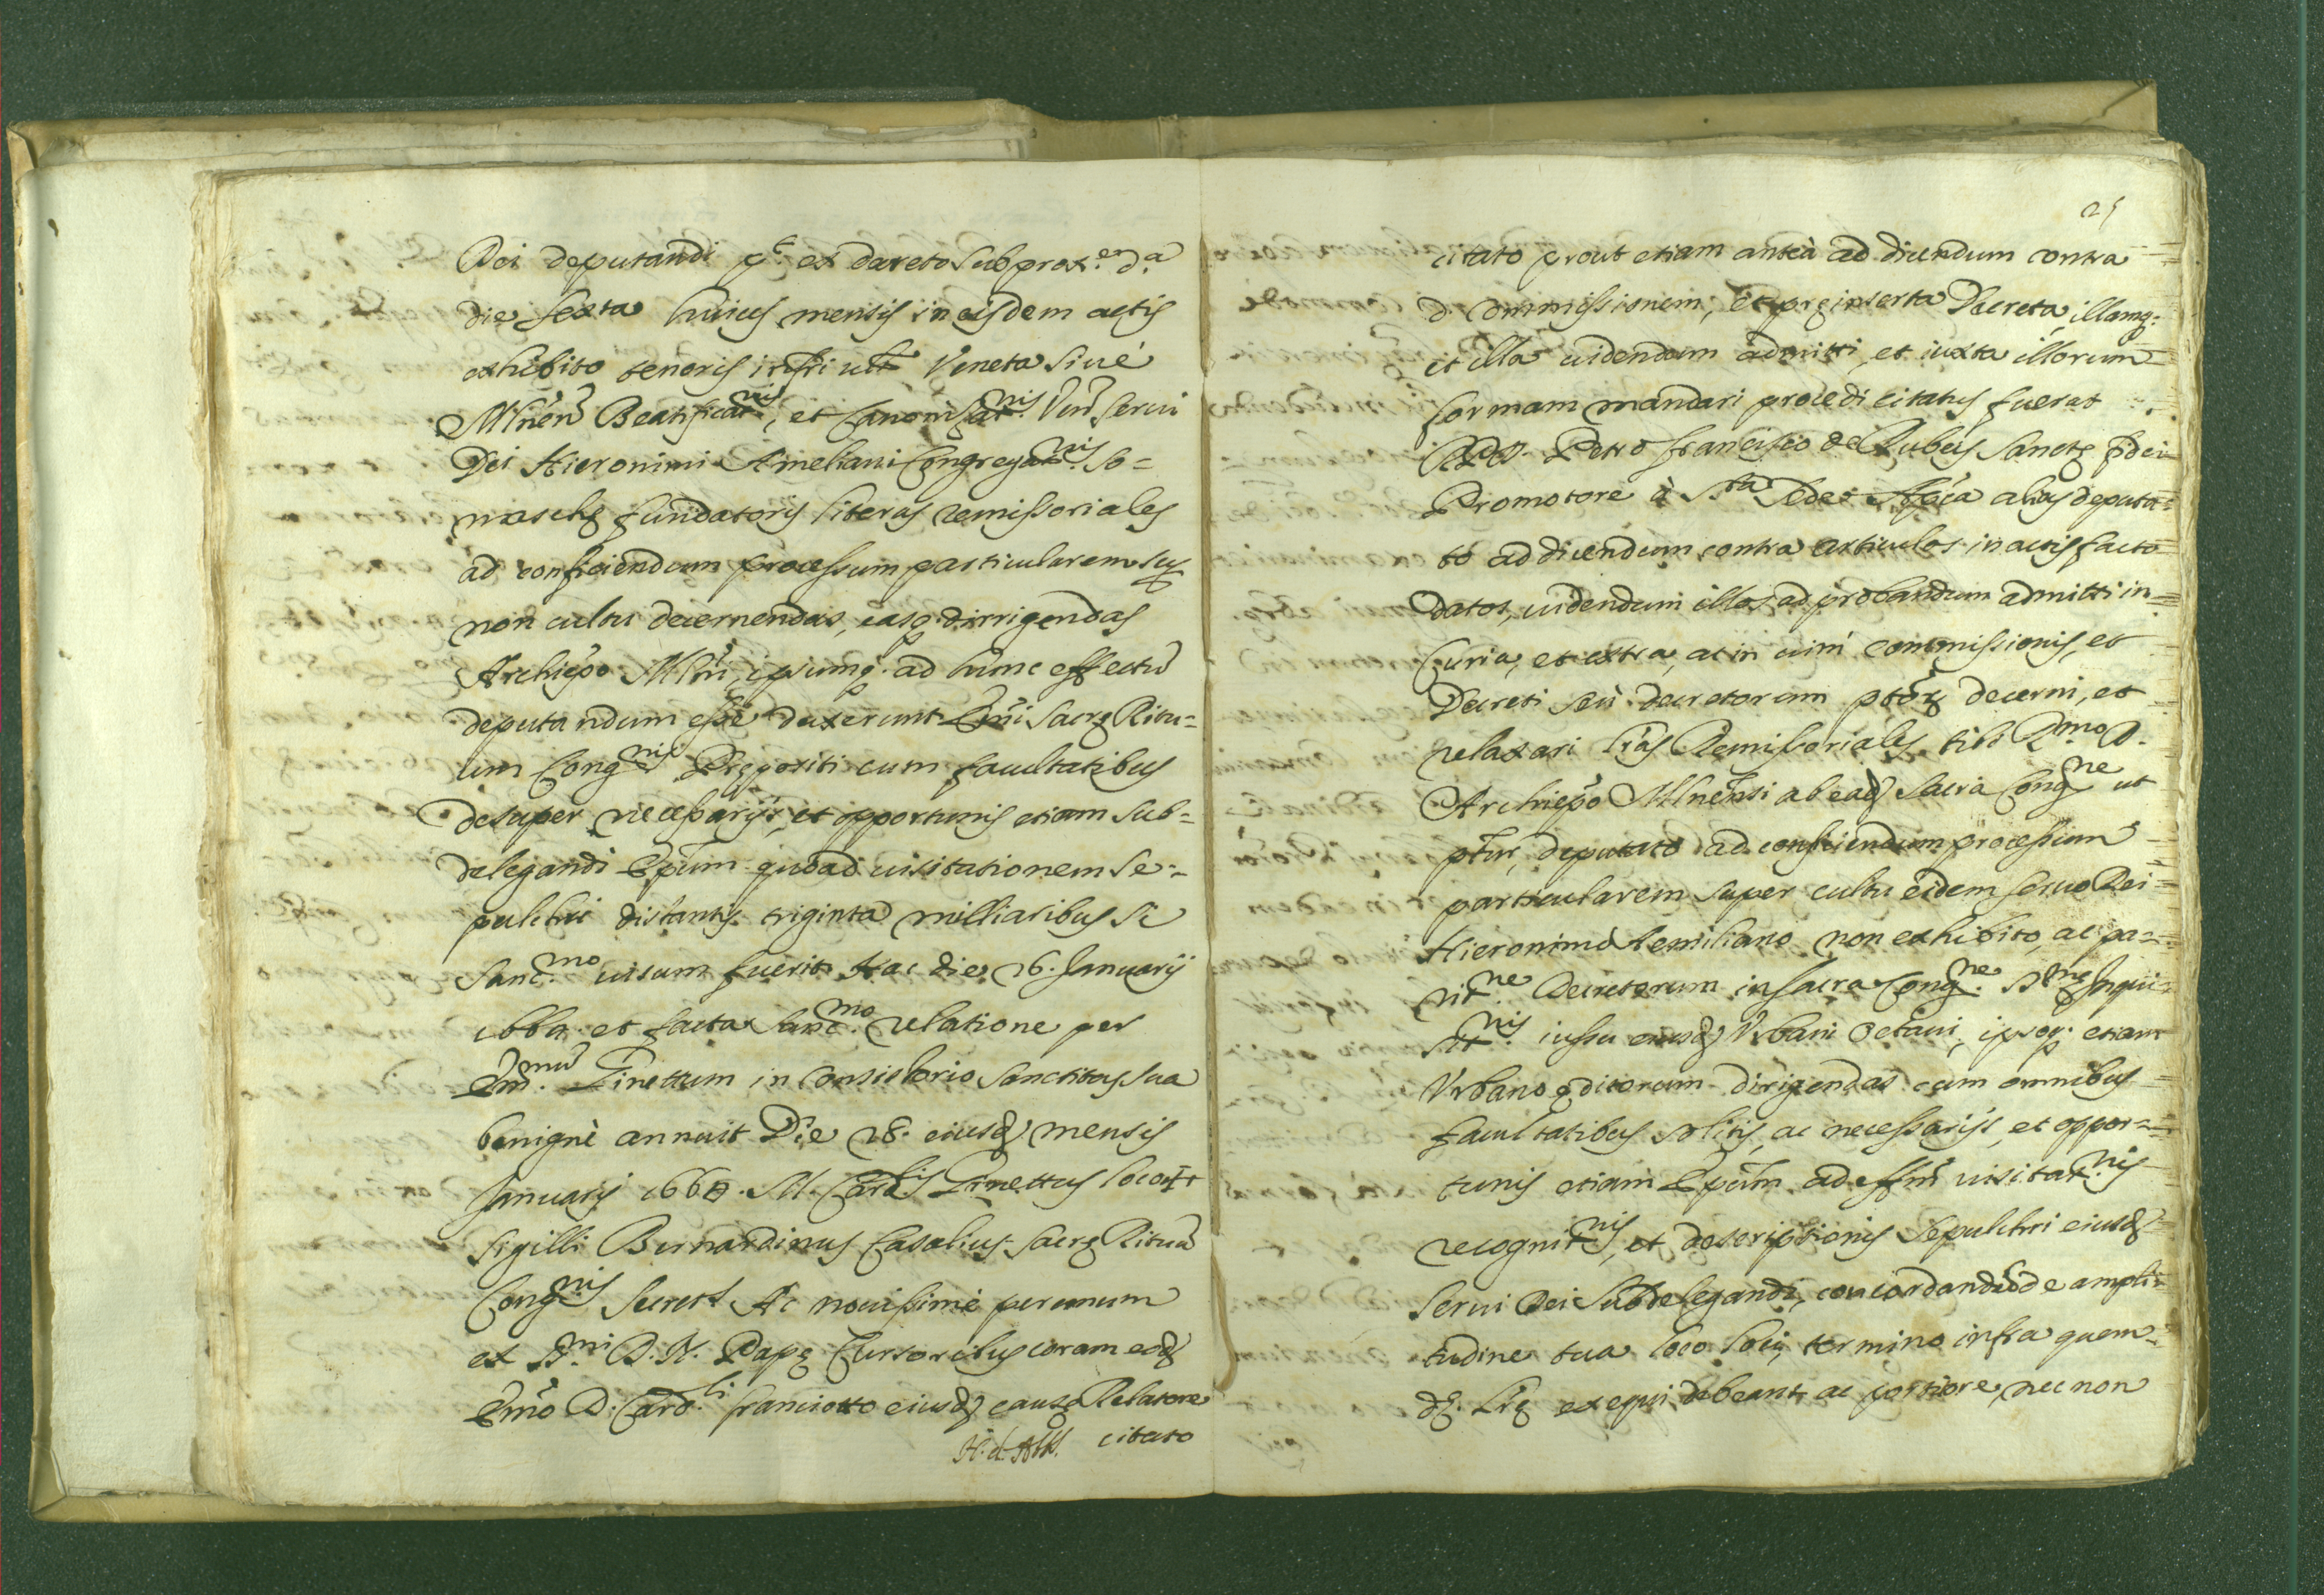 Dei deputandi p.ᵗ ex decreto sub prox.ᵉ d.ᵃ
die sexta huius mensis in eisdem actis
exhibito tenoris infri ult Veneta siuè
Mlnēn Beatificat.ⁿⁱˢ, et Canonizat.ⁿⁱˢ Veñ serui
Dei Hieronimi Ameliani Congregat.ⁿⁱˢ So=
maschę fundatoris literas remissoriales
ad conficiendum processum particularem sup
non cultu decernendas, easq. dirrigendas
Archiepo Mlñi, ipsumq. ad hunc effectũ
deputandum esse duxerunt Em̃i Sacrę Ritu=
um Cong.ⁿⁱˢ Prępositi cum facultatibus
desuper necessarijs, et opportunis etiam sub=
delegandi Epũm quoad uisitationem se=
pulchri distantis triginta milliaribus si
Sanc.ᵐᵒ uisum fuerit Hac die 16. Januarij
1660. et facta Sanc.ᵐᵒ relatione per
Em.ᵐᵘ̃ Ginettum in Consistorio Sanctitas sua
benignè annuit Die 18. eiusd mensis
Januarij 1660. M. Card.ˡⁱˢ Ginettus loco ++
sigilli Bernardinus Casalius Sacrę Rituũ
Cong.ⁿⁱˢ Secret.ˢ Ac nouissimè per unum
ex S.ᵐⁱ D. N. Papę Cursoribus coram eod
Em̃o D. Card.ˡⁱ franciotto eiusd causę Relatore
citato
25
citato prout etiam anteà ad dicendum contra
d. Commissionem, et pręinserta Decreta, illamq.
et illa uidendum admitti, et iuxta illorum
formam mandari procedi citatus fuerat
R.P.D. Petro francisco de Rubeis Sanctę fidei
Promotore à S.ᵗᵃ Sede Apc̃a alias deputa=
to ad dicendum contra articulos in actis facto
datos, uidendum illos ad probandum admitti in
Curia, et extra, ac in uim Commissionis, et
Decreti seù decretorum ptorę decerni, et
relaxari l̃ras Remissoriales tibi R.ᵐᵒ D.
Archiepo Mlneñsi ab ead Sacra Cong.ⁿᵉ ut
ptur, deputato ad conficiendum processum
particularem super cultu eidem seruo Dei
Hieronimo Aemiliano non exhibito, ac pa=
rit.ⁿᵉ Decretorum in Sacra Cong.ⁿᵉ S.ᵐę Inqui=
sit.ⁿⁱˢ iussu eiusd Vrbani Octaui, ipsoq. etiam
Vrbano ęditorum dirigendas cum omnibus
facultatibus solitis, ac necessarijs, et oppor=
tunis etiam Epũm ad eff̃m uisitat.ⁿⁱˢ
recognit.ⁿⁱˢ, et descriptionis Sepulchri eiusd
Serui Dei Subdelegandi, concordandũ de ampli=
tudine tua loco loci, termino infra quem
dę. Lrę exequi debeant, ac portiore, nec non